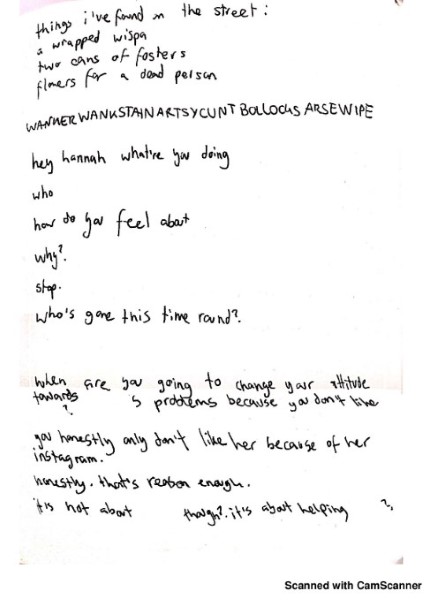 things i've found on the street:
a wrapped wispa
two cans of fosters
flowers for a dead person
WANKERWANKSTAINARTSYCUNTBOLLOCKSARSEWIPE
hey hannah what're you doing
who
how do you feel about
why?.
stop.
who's gone this time round?.
when are you going to change your attitude
towards 's problems because you don't like
?
you honestly only don't like her because of her
instagram.
honestly. that's reason enough.
it's not about though?. it's about helping ?.
Scanned with CamScanner